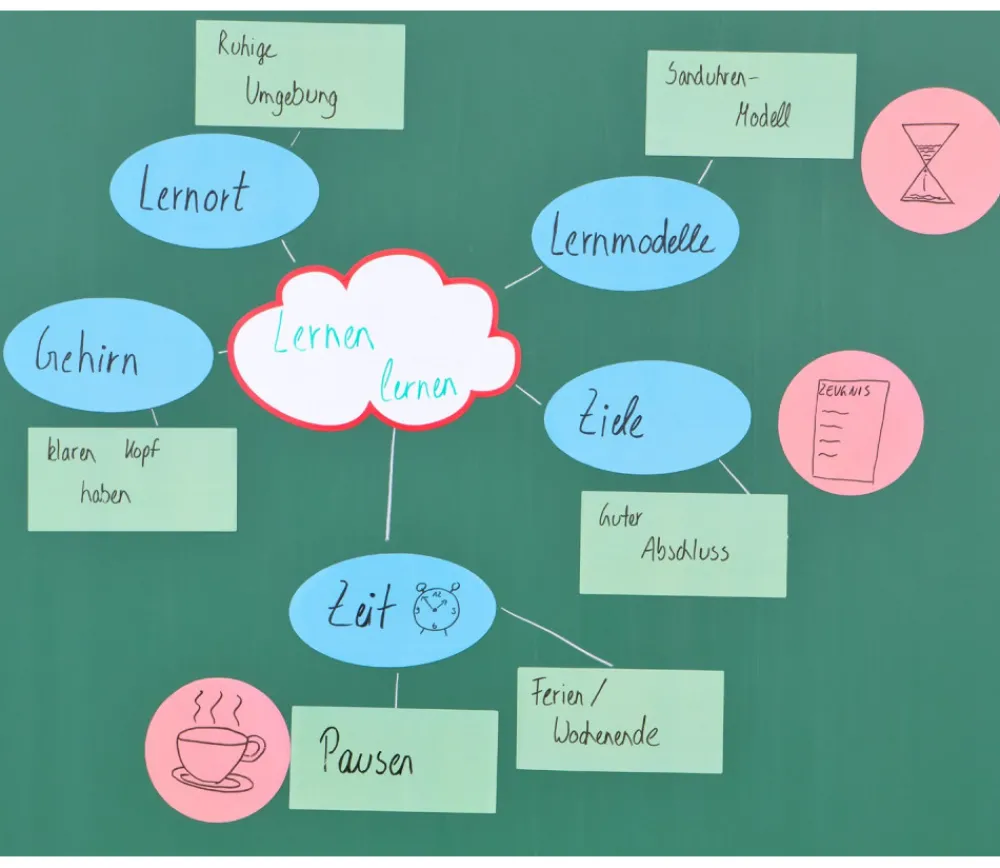 Ruhige
Umgebung
Sanduhren-
Modell
Lernort
Lernmodelle
Gehirn
Lernen
lernen
ZEUGNIS
Ziele
klaren Kopf
haben
Guter
Abschluss
Zeit
12
9 3
6
Ferien/
Wochenende
Pausen